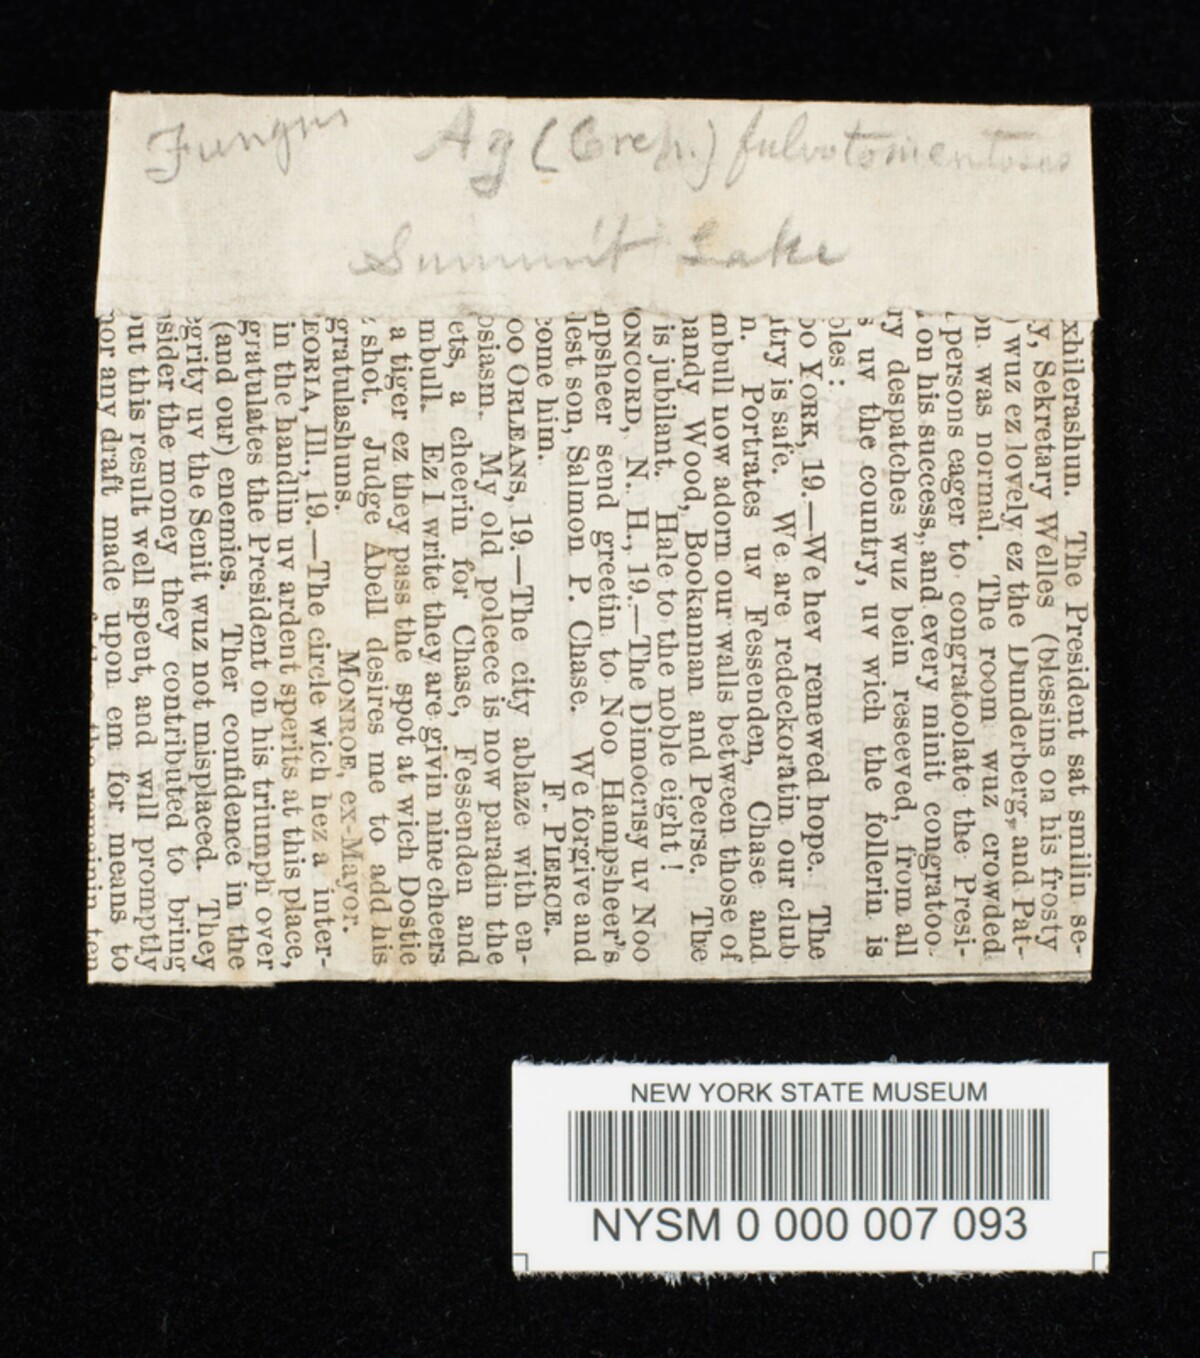 Fungus Ag (Crep.) fulvotomentosus
Summit Lake
xhilerashun. The President sat smilin se-
y, Sekretary Welles (blessins on his frosty
) wuz ez lovely ez the Dunderberg, and Pat-
on. was normal. The room wuz crowded
persons eager to congratoolate the Presi-
on his success, and every minit congratoo-
ry despatches wuz bein reseeved, from all
s uv the country, uv wich the follerin is
ples:
oo YORK, 19.—We hev renewed hope. The
ntry is safe. We are redeckoratin our club
n. Portrates uv Fessenden, Chase and
mbull now adorn our walls between those of
nandy Wood, Bookannan and Peerse. The
is jubilant. Hale to the noble eight!
ONCORD, N. H., 19.—The Dimocrisy uv Noo
mpsheer send greetin to Noo Hampsheer's
lest son, Salmon P. Chase. We forgive and
come him. F. PIERCE.
oo ORLEANS, 19.—The city ablaze with en-
osiasm. My old poleece is now paradin the
ets, a cheerin for Chase, Fessenden and
mbull. Ez I write they are givin nine cheers
a tiger ez they pass the spot at wich Dostie
shot. Judge Abell desires me to add his
gratulashuns. MONROE, ex-Mayor.
EORIA, Ill., 19.—The circle wich hez a inter-
in the handlin uv ardent sperits at this place,
gratulates the President on his triumph over
(and our) enemies. Ther confidence in the
egrity uv the Senit wuz not misplaced. They
nsider the money they contributed to bring
out this result well spent, and will promptly
nor any draft made upon em for means to
the remainin ten
NEW YORK STATE MUSEUM
NYSM 0 000 007 093